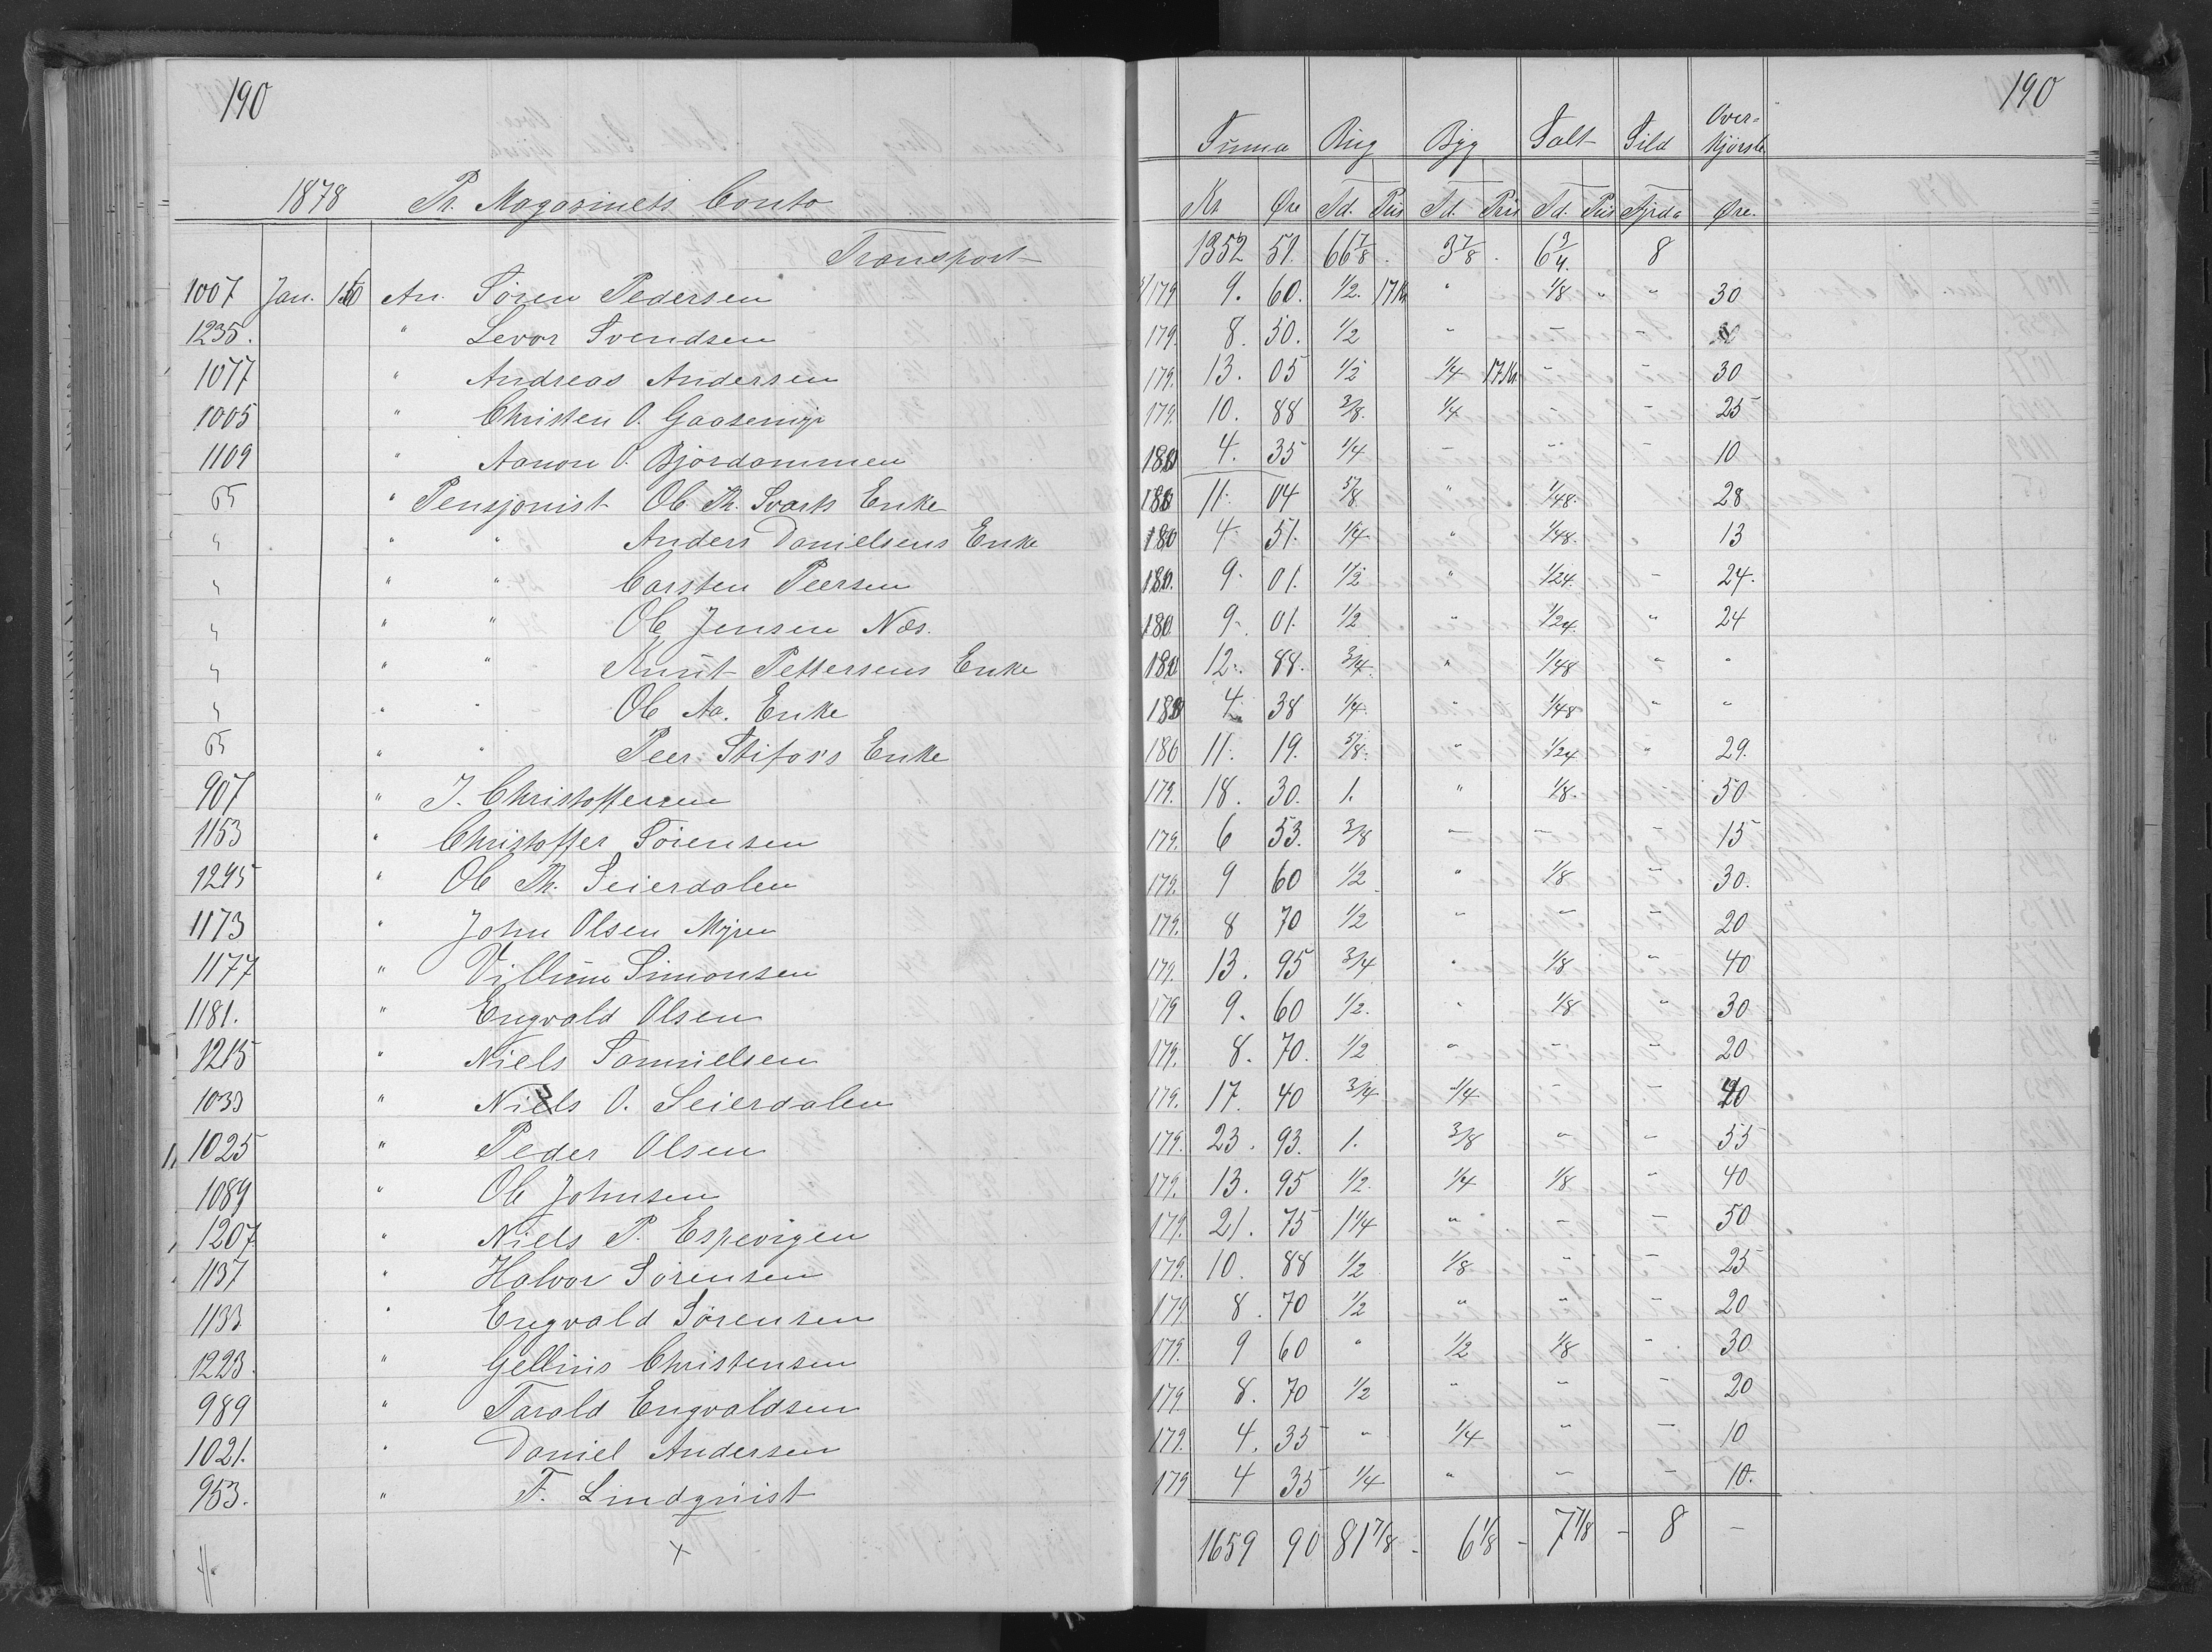 190
190
Over-
Summa Rug Byg Salt Sild Kjørsle
1878 Pr. Magasinets Conto Kr Øre Td. Pris Td. Pris Td. Pris Fjrd. Øre.
Transport 1352 51. 66 7/8. 3 7/8. 6 3/4. 8
1007 Jan. An. Søren Pedersen 179 9. 60. 1/2. 17 Kr " 1/8 " " 30
1235. " Levor Svendsen 179. 8. 50. 1/2 " - -
1077 " Andreas Andersen 179. 13. 05 1/2 1/4 17 Kr. - - 30
1005 " Christen O. Gaasemyr 179. 10. 88 3/8. 1/4 - - 25
1109 " Aanon O. Bjordammen 180 4. 35 1/4 - - - 10
65 " Pensjonist Ole Th. Svarts Enke 180 11. 04 5/8 " 1/48. 28
" " " Anders Danielsens Enke 180 4. 51. 1/4 " 1/48. " 13
" " " Carsten Peersen 180. 9. 01. 1/2 " 1/24. - 24.
" " " Ole Jensen Næs. 180 9. 01. 1/2 " 1/24. " 24
" " " Knut Pettersens Enke 180 12. 88. 3/4. " 1/48 " "
" " " Ole Aa. Enke 180 4. 38 1/4. " 1/48 " "
65 " " Peer Stifos's Enke 180 11. 19. 5/8. " 1/24 " 29.
907 " J. Christoffersen 179. 18. 30. 1. " 1/8. 50
1153 " Christoffer Sörensen 179. 6 53. 3/8 - - - 15
1295 " Ole Th. Seierdalen 179. 9 60 1/2 " 1/8 - 30.
1173 " John Olsen Myren 179. 8 70 1/2 - - - 20
1177 " Villum Simonsen 179. 13. 95 3/4 " 1/8 " 40
1181. " Engvald Olsen 179 9. 60 1/2. " 1/8 " 30
1215 " Niels Samuelsen 179. 8. 70. 1/2 " - - 20
1033 " Niels O. Seierdalen 179. 17. 40 3/4 1/4 - - 40
1025 " Peder Olsen 179. 23. 93. 1. 3/8 " - 55
1089 " Ole Johnsen 179. 13. 95 1/2 1/4 1/8 - 40
1207. " Niels P. Espevigen 179. 21. 75 1 1/4 " - - 50
1137 " Halvor Sörensen 179. 10. 88 1/2 1/8 " - 25
1133 " Engvald Sörensen 179 8. 70 1/2 " " - 20
1223. " Gellius Christensen 179. 9 60 " 1/2 1/8 - 30
989 " Tarald Engvaldsen 179. 8. 70 1/2 " - - 20
1021. " Daniel Andersen 179. 4. 35 " 1/4 " - 10
953. " F. Lindqvist 179 4 35 1/4 " - - 10.
1659 90 81 7/8 - 6 1/8 - 7 7/8 - 8 -